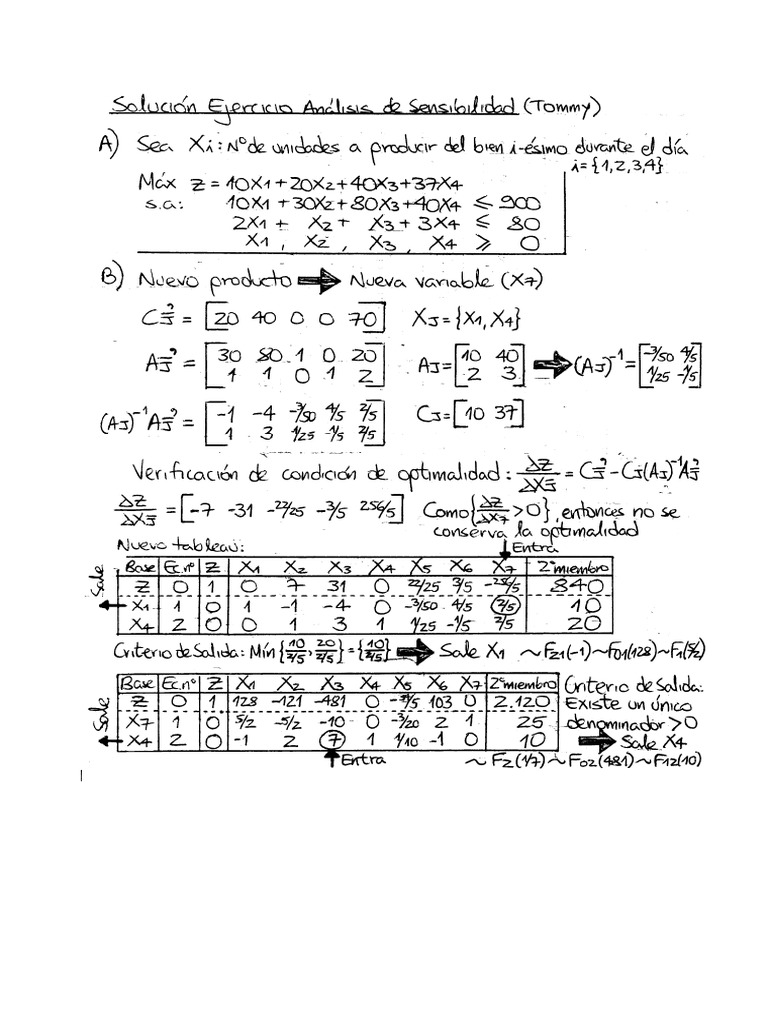 Solución Ejercicio Análisis de Sensibilidad (Tommy)
A) Sea Xi: Nº de unidades a producir del bien i-ésimo durante el día
i={1,2,3,4}
Máx Z = 10X1+20X2+40X3+37X4
s.a: 10X1+30X2+80X3+40X4 ≤ 900
2X1 + X2 + X3 + 3X4 ≤ 80
X1 , X2 , X3 , X4 ≥ 0
B) Nuevo producto ➡ Nueva variable (X7)
CJ̄' = [20 40 0 0 70] XJ={X1,X4}
AJ̄' = [30 80 1 0 20 AJ= [10 40 ➡ (AJ)⁻¹= [-3/50 4/5
1 1 0 1 2] 2 3] 1/25 -1/5]
(AJ)⁻¹AJ̄' = [-1 -4 -3/50 4/5 2/5 CJ= [10 37]
1 3 1/25 -1/5 2/5]
Verificación de condición de optimalidad: ΔZ/ΔXJ̄ = CJ̄' - CJ(AJ)⁻¹AJ̄'
ΔZ/ΔXJ̄ = [-7 -31 -22/25 -3/5 256/5] Como{ΔZ/ΔX7 >0}, entonces no se
conserva la optimalidad
Nuevo tableau: Entra
Base Ec.nº Z X1 X2 X3 X4 X5 X6 X7 2ºmiembro
Z 0 1 0 7 31 0 22/25 3/5 -256/5 840
Sale X1 1 0 1 -1 -4 0 -3/50 4/5 2/5 10
X4 2 0 0 1 3 1 1/25 -1/5 2/5 20
Criterio de Salida: Mín{10/2/5, 20/2/5}={10/2/5} ➡ Sale X1 ~F21(-1)~F01(128)~F1(5/2)
Base Ec.nº Z X1 X2 X3 X4 X5 X6 X7 2ºmiembro Criterio de Salida:
Z 0 1 128 -121 -481 0 -34/5 103 0 2.120 Existe un único
Sale X7 1 0 5/2 -5/2 -10 0 -3/20 2 1 25 denominador >0
X4 2 0 -1 2 7 1 1/10 -1 0 10 ➡ Sale X4
Entra ~F2(1/7)~F02(481)~F12(10)